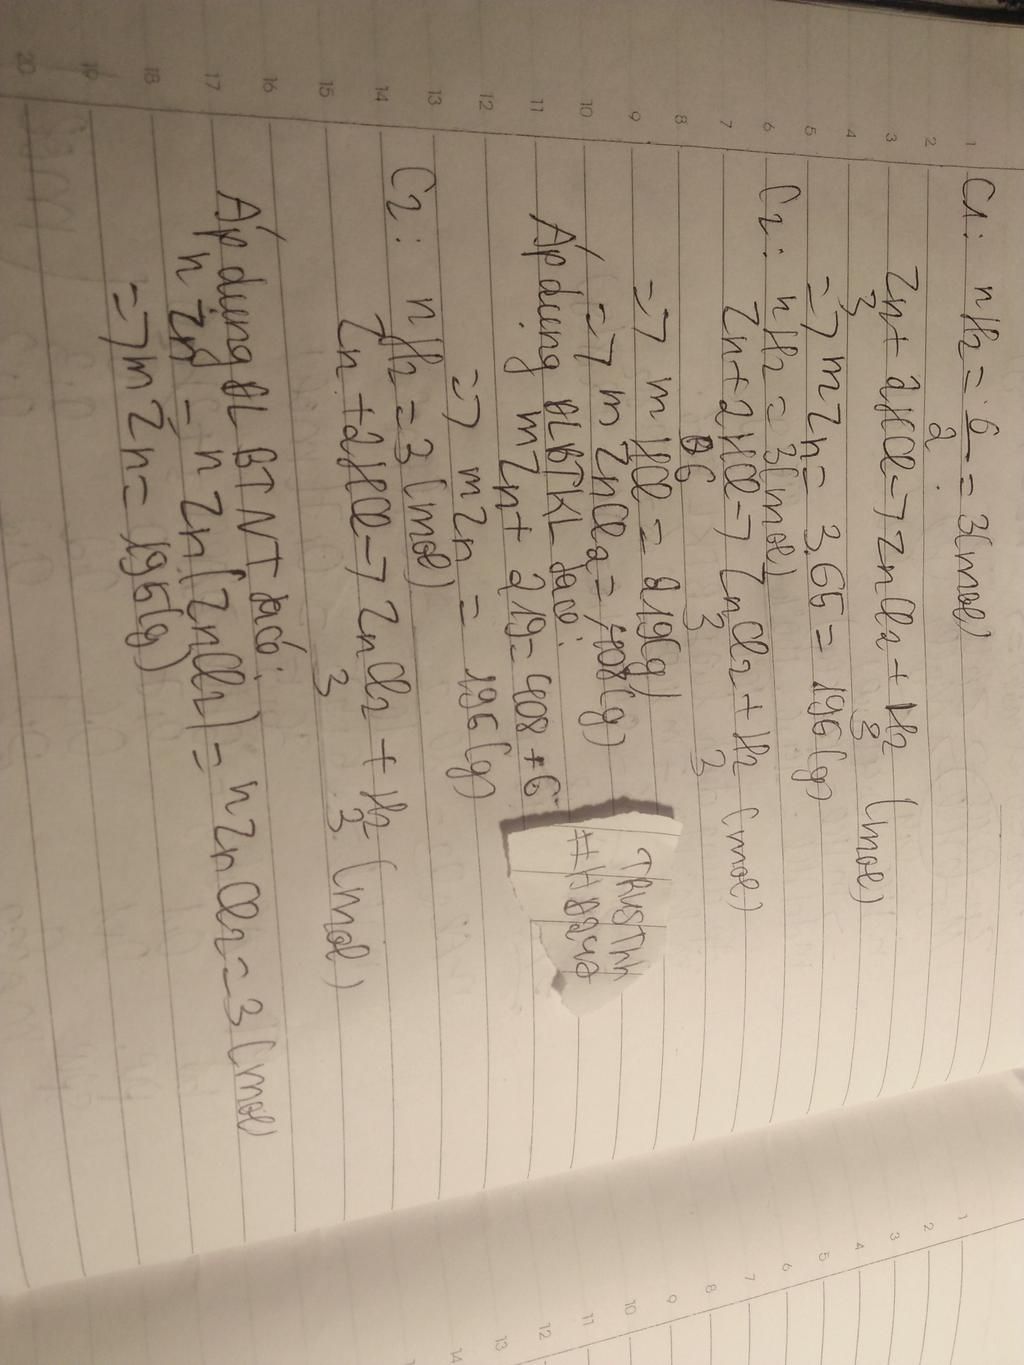 C1: nH2 = 6/2 = 3(mol)
Zn + 2HCl -> ZnCl2 + H2 (mol)
3 3
=> mZn = 3.65 = 195(g)
C2: nH2 = 3(mol)
Zn + 2HCl -> ZnCl2 + H2 (mol)
6 3 3
=> mHCl = 219(g)
=> mZnCl2 = 408(g)
Áp dụng ĐLBTKL ta có:
mZn + 219 = 408 + 6
=> mZn = 195(g)
C2: nH2 = 3(mol)
Zn + 2HCl -> ZnCl2 + H2 (mol)
3 3
Áp dụng ĐL BTNT ta có:
nZn = nZn(ZnCl2) = nZnCl2 = 3(mol)
=> mZn = 195(g)
1
2
3
4
5
6
7
8
9
10
11
12
13
14
15
16
17
18
19
20
1
2
3
4
5
6
7
8
9
10
11
12
13
14